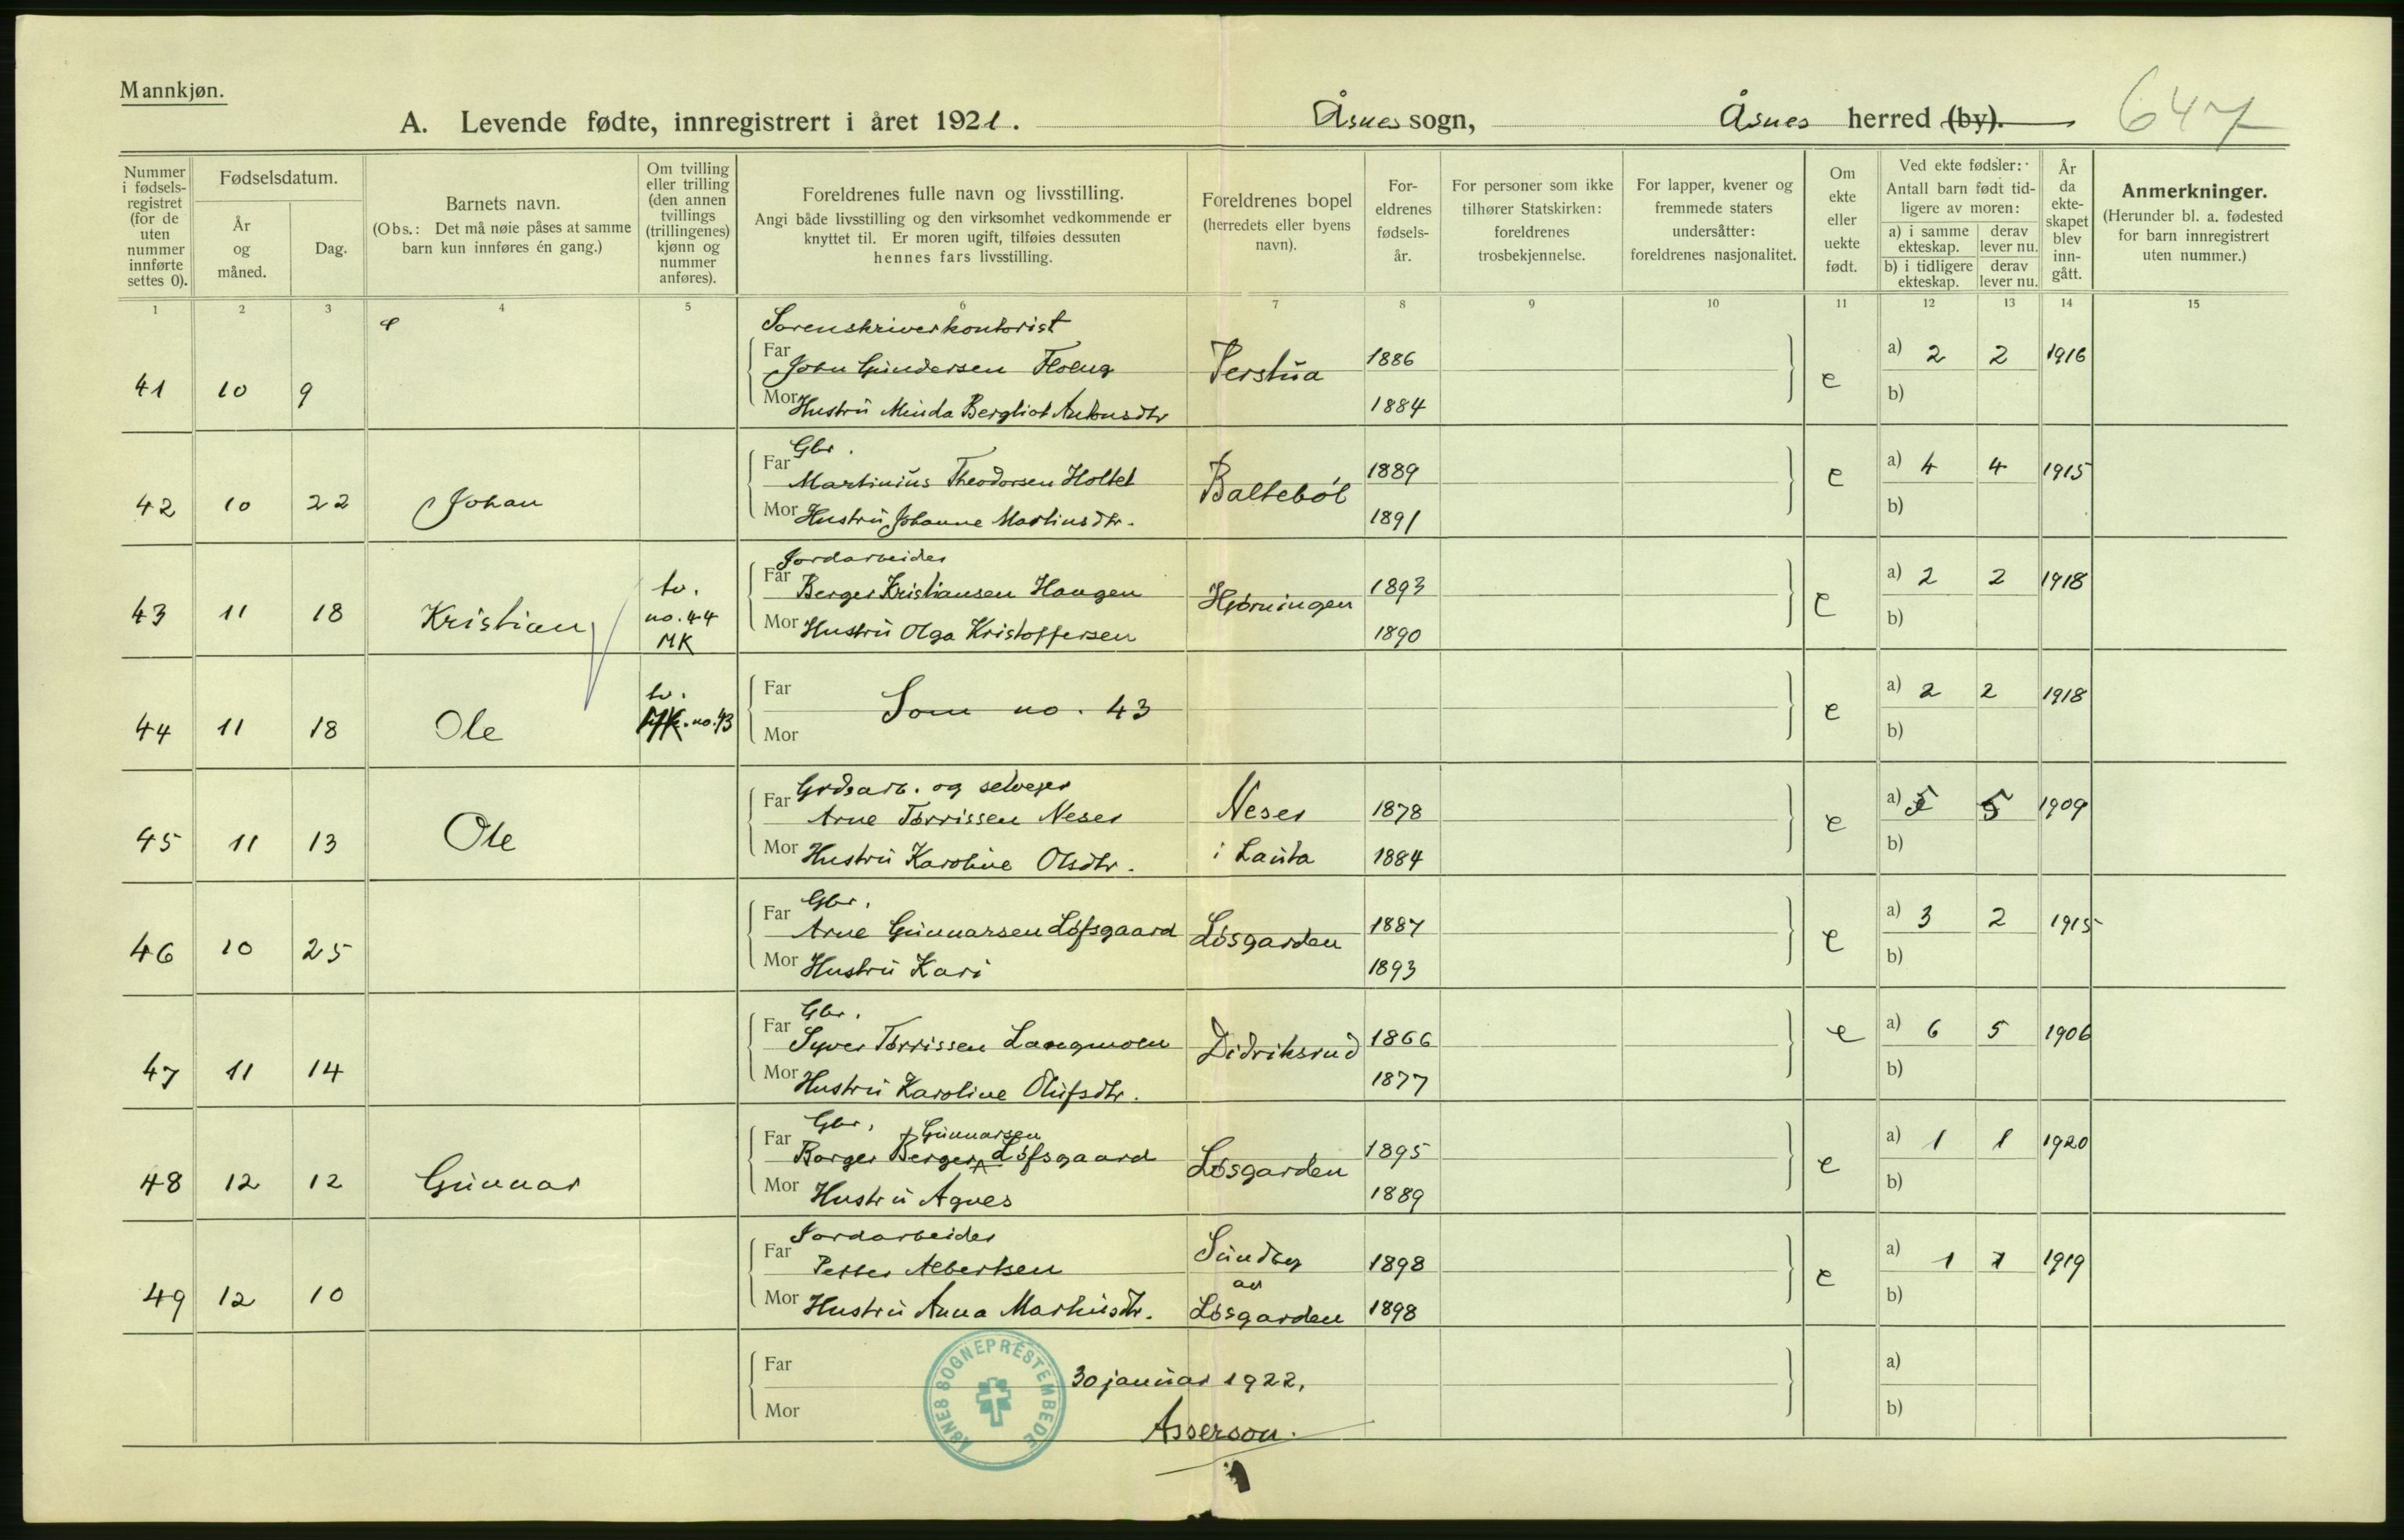 Mannkjøn.
A. Levende fødte, innregistrert i året 1921. Åsnes sogn, Åsnes herred (by). 647
Nummer i fødsels-registret (for de uten nummer innførte settes 0).
Fødselsdatum.
År og måned.
Dag.
Barnets navn.
(Obs.: Det må nøie påses at samme barn kun innføres én gang.)
Om tvilling eller trilling (den annen tvillings (trillingenes) kjønn og nummer anføres).
Foreldrenes fulle navn og livsstilling.
Angi både livsstilling og den virksomhet vedkommende er knyttet til. Er moren ugift, tilføies dessuten hennes fars livsstilling.
Foreldrenes bopel (herredets eller byens navn).
For-eldrenes fødsels-år.
For personer som ikke tilhører Statskirken: foreldrenes trosbekjennelse.
For lapper, kvener og fremmede staters undersåtter: foreldrenes nasjonalitet.
Om ekte eller uekte født.
Ved ekte fødsler: Antall barn født tid-ligere av moren:
a) i samme ekteskap. derav lever nu.
b) i tidligere ekteskap. derav lever nu.
År da ekte-skapet blev inn-gått.
Anmerkninger.
(Herunder bl. a. fødested for barn innregistrert uten nummer.)
1 2 3 4 5 6 7 8 9 10 11 12 13 14 15
Sorenskriverkontorist
41 10 9 Far John Gundersen Perstua 1886 e a) 2 2 1916
Mor Hustru Minda Bergliot Antonsdtr 1884 b)
Gbr.
42 10 22 Johan Far Martinius Theodorsen Holtet Baltebøl 1889 e a) 4 4 1915
Mor Hustru Johanne Martinsdtr. 1891 b)
Jordarbeider
43 11 18 Kristian tv. no. 44 MK Far Berger Kristiansen Haugen Hjørningen 1893 e a) 2 2 1918
Mor Hustru Olga Kristoffersen 1890 b)
44 11 18 Ole tv. MK. no. 43 Far Som no. 43 e a) 2 2 1918
Mor b)
Grdsarb. og selveier
45 11 13 Ole Far Arne Tørrissen Neser Neser 1878 e a) 5 5 1909
Mor Hustru Karoline Olsdtr. i Lauta 1884 b)
Gbr.
46 10 25 Far Arne Gunnarsen Løfsgaard Løsgarden 1887 e a) 3 2 1915
Mor Hustru Kari 1893 b)
Gbr.
47 11 14 Far Syver Tørrissen Langmoen Didriksrud 1866 e a) 6 5 1906
Mor Hustru Karoline Olufsdtr. 1877 b)
Gbr. Gunnarsen
48 12 12 Gunnar Far Borger Berger Løfsgaard Løsgarden 1895 e a) 1 1 1920
Mor Hustru Agnes 1889 b)
Jordarbeider
49 12 10 Far Petter Albertsen Sundby 1898 e a) 1 1 1919
av
Mor Hustru Anna Martinsdtr. Løsgarden 1898 b)
Far 30 januar 1922. a)
Mor Asserson. b)
ÅSNES SOGNEPRESTEMBEDE